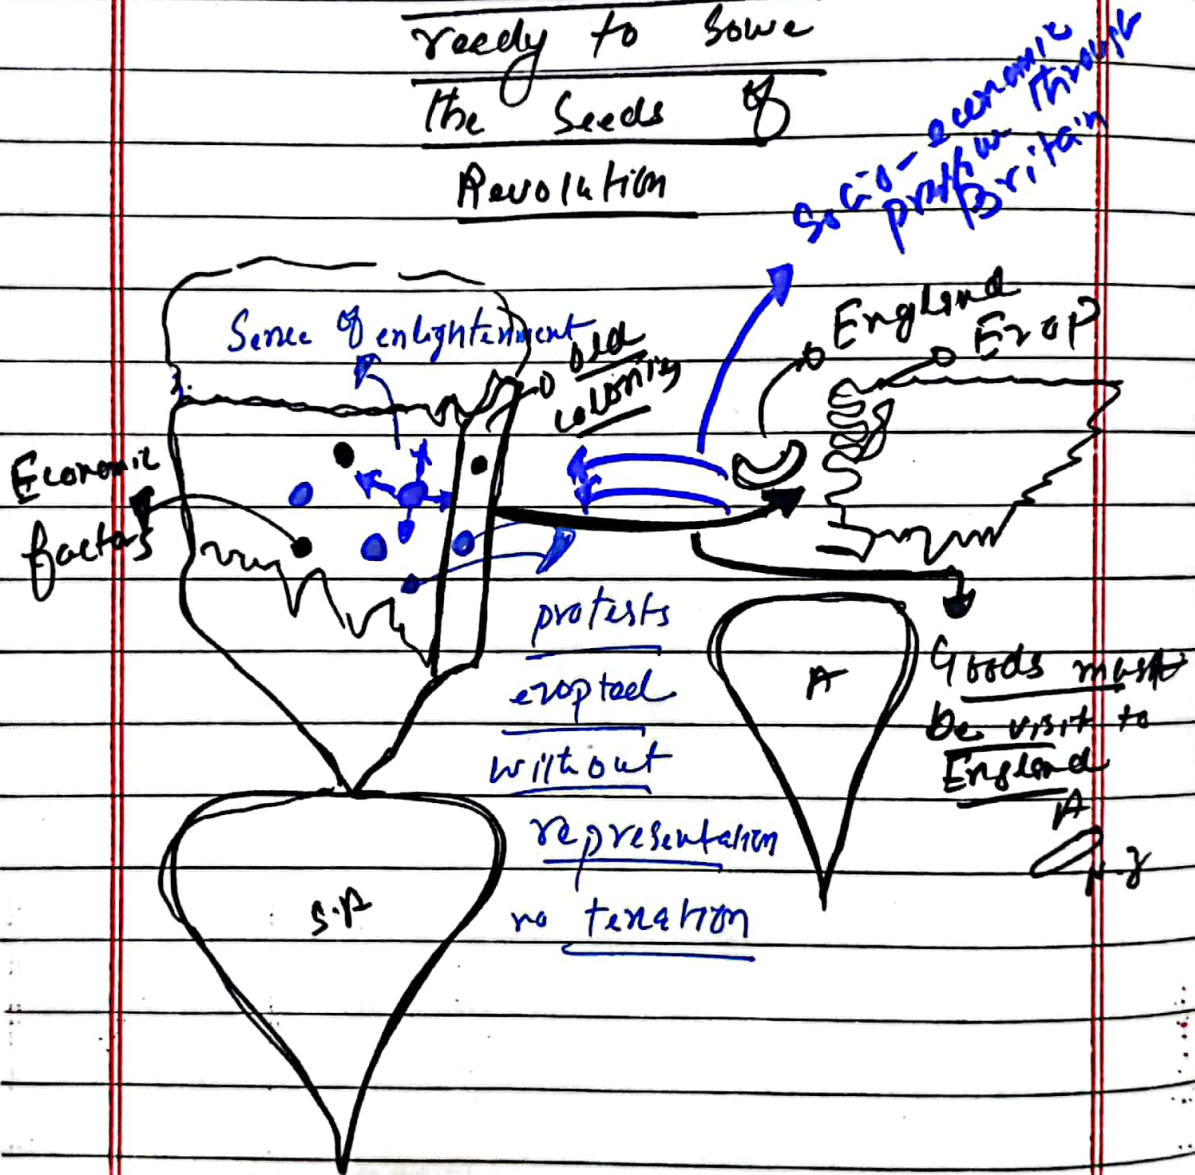 ready to Sowe
the Seeds of
Revolution
Socio-economic
through
Britain
England
Erop
Sense of enlightenment
old
colonies
Economic
factors
protests
eropted
without
representation
no texation
A
Goods must
be visit to
England
A
N.Z
S.A